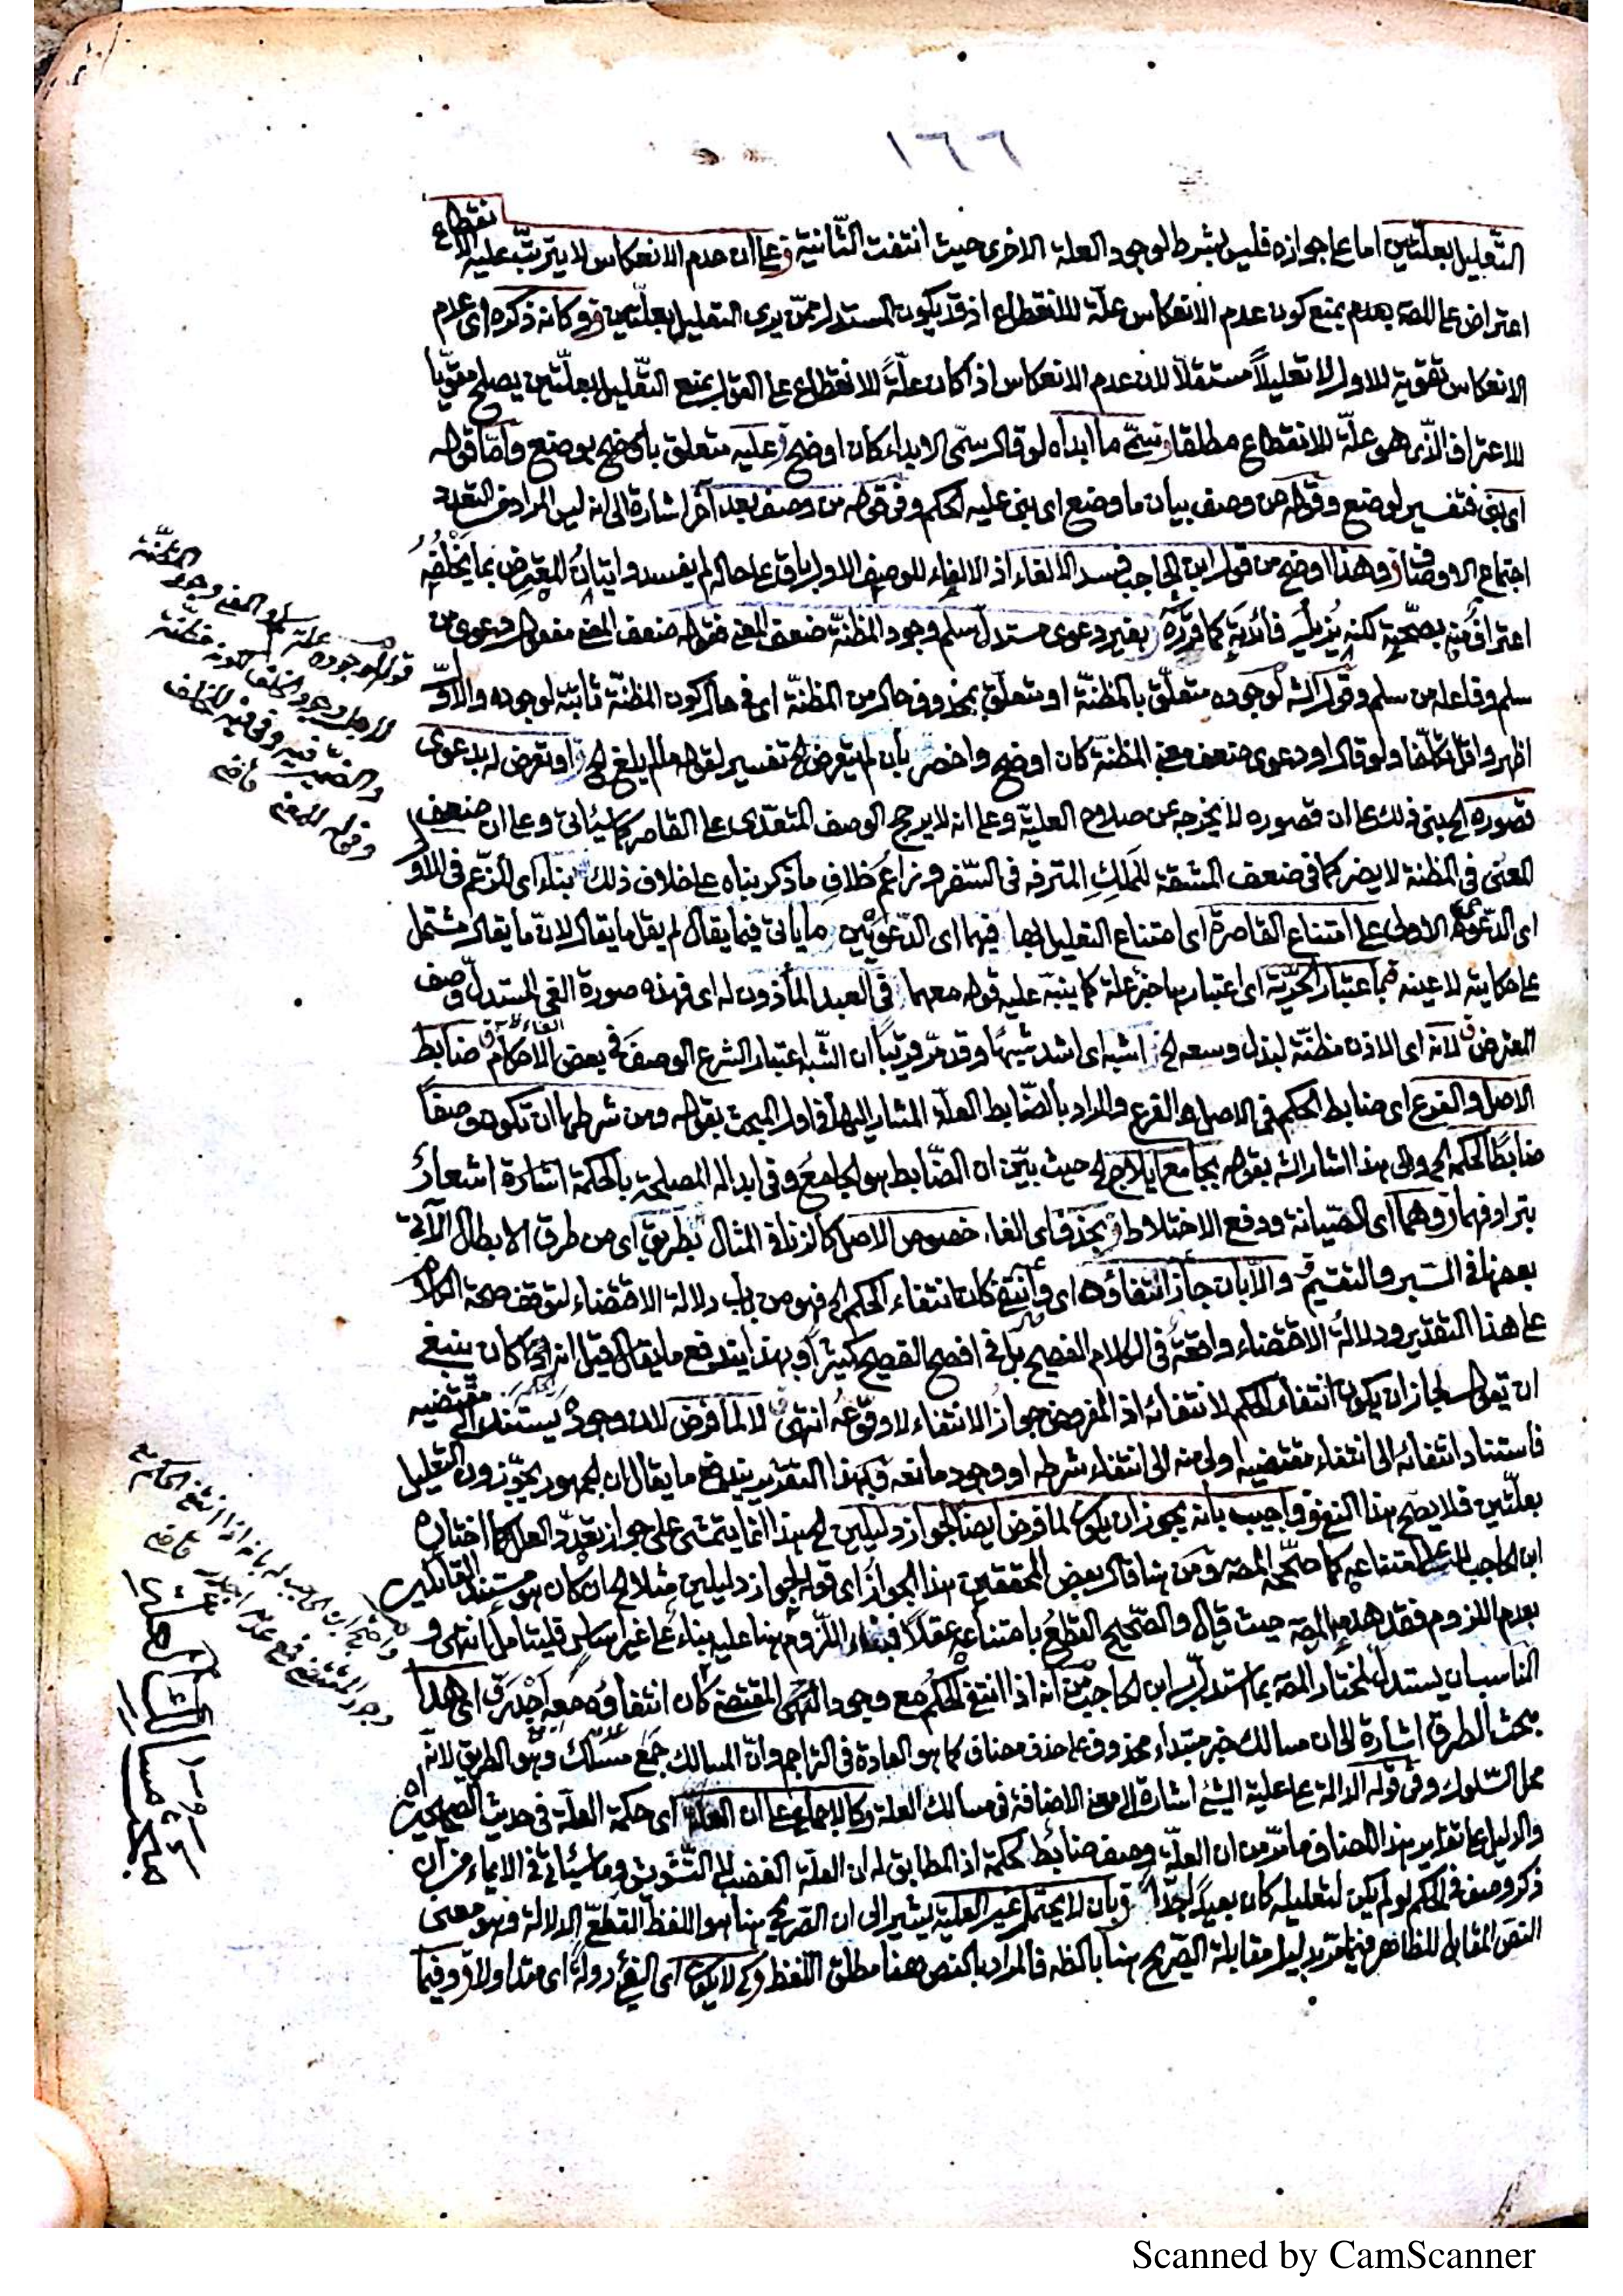 ١٦٦
التعليل بعلتين اما على جوازه فليس بشرط لوجود العلة الاخرى حيث انتفت الثانية وعلى ان عدم الانعكاس لا يترتب عليه الانقطاع
اعتراض على المصـ بعدم يمنع كون عدم الانعكاس علة للانقطاع اذ قد يكون المستدل ممن يرى التعليل بعلتين وكانه ذكره اى عدم
الانعكاس تقوية للاول لا تعليلاً مستقلاً لان عدم الانعكاس اذا كان علةً للانقطاع على القول بمنع التعليل بعلتين يصلح مقويّا
للاعتراف الذى هو علة للانقطاع مطلقا وتسمى ما ابداه لو قال سمى الابداء كان اوضح عليه متعلق باوضح بوضع واما قوله
اى بنى فتفسير لوضع وقوله من وصف بيان ما وضع اى بنى عليه الحكم وفى قوله من وصف بعد آخر اشارة الى انه ليس المراد من التعدد
اجتماع الاوصاف وهذا اوضح من قول ابن الحاجب فسد الالغاء اذ الالغاء للوصف الاول باق على حاله لم يفسد واتيان المعترض بما يخلفه
اعتراف منه بصحته لكنه يزيل فائدته كما قرره بغير دعوى مستدل سلم وجود المظنة ضعف المعنى فقوله ضعف المعنى مفعول دعوى من
سلم وفاعله من سلم وقول الشـ لوجوده متعلق بالمظنة او متعلق بمحذوف حال من المظنة اى فى حال كون المظنة ثابتة لوجوده والاول
اظهر واقل تكلفا ولو قال او دعوى ضعف معنى المظنة كان اوضح واخصر بان لم يتعرض الخ تفسير لقوله ما لم يلغ الخ او تعرض له بدعوى
قصوره الخ بنى ذلك على ان قصوره لا يخرجه عن صلاح العلية وعلى انه لا يرجح الوصف المتعدى على القاصر كما سيأتى وعلى ان ضعف
المعنى فى المظنة لا يضر كما فى ضعف المشقة للملك المترفه فى السفر وزاعم خلاف ما ذكر بناه على خلاف ذلك بناء اى الزعم فى الاول
اى الدعوى الاولى على امتناع القاصرة اى امتناع التعليل بها فيهما اى الدعويين ما يأتى فيما يقال لم يقل ما يقال لان ما يقال مشتمل
على حكايته لا عينه فما اعتبار الحرية اى اعتبارها جزء علة كما ينبه عليه قوله معهما فى العبد المأذون له اى فهذه صورة الغى المستدل وصف
المعترض لانه اى الاذن مظنة لبذل وسعه الخ اشبه اى اشد شبها وقد مرّ قريبًا ان الشبه اعتبار الشرع الوصف فى بعض الاحكام ضابط
الاصل والفرع اى ضابط الحكم فى الاصل والفرع والمراد بالضابط العلة المشار اليها فى اول المبحث بقوله ومن شرطها ان تكون وصفاً
ضابطًا لحكمة الخ والى هذا اشار الشـ بقوله بجامع ايلاج الخ حيث بيّن ان الضابط هو الجامع وفى ابداله المصلحة بالحكمة اشارة اشعار
بترادفهما وهما اى الصيانة ودفع الاختلاط بحذف اى الغاء خصوص الاصل كالزنا فى المثال بطريق اى من طرق الابطال الآتى
بعضها فى السبر والتقسيم والا بان جاز انتفاؤها اى وانتفى كان انتفاء الحكم الخ فهو من باب دلالة الاقتضاء لتوقف صحة الكلام
على هذا التقدير ودلالة الاقتضاء واقعة فى الكلام الفصيح بل فى افصح الفصيح كثيرًا وبهذا يندفع ما يقال قيل انه كان ينبغى
ان يقول لجاز ان يكون انتفاء الحكم لانتفائه اذ المفروض جواز الانتفاء لا وقوعه انتهى لا لما فرض لان وجوده يستند الى مقتضيه
فاستناد انتفائه الى انتفاء مقتضيه اولى منه الى انتفاء شرطه او وجود مانعه فبهذا التقدير يندفع ما يقال ان الجمهور يجوّزون التعليل
بعلتين فلا يصح هذا التفوق واجيب بانه يجوز ان يكون لما فرض ايضا لجواز دليلين الخ هذا انما يتمشى على جواز تعدد العلل كما اختاره
ابن الحاجب لا على امتناعه كما صححه المصـ ومن هنا قال بعض المحققين هذا الجواز اى قوله لجواز دليلين مثلا الخ ان كان هو مستند القائلين
بعدم اللزوم فقد هدمه المصـ حيث قال والصحيح القطع بامتناعه عقلاً فبناء اللزوم هنا عليه بناء على غير اساس فليتامل انتهى و
المناسب ان يستدل لمختار المصـ بما استدل به ابن الحاجب من انه اذا انتفى الحكم مع وجود المقتضى كان انتفاؤه معه اجدر اى هذا
مبحث الطرق اشارة الى ان مسالك خبر مبتداء محذوف على حذف مضاف كما هو العادة فى التراجم وان المسالك جمع مسلك وهو الطريق لانه
محل السلوك وفى قوله الدالة على علية الشئ اشارة الى معنى الاضافة فى مسالك العلة كالاجماع على ان العلة اى حكمة العلة فى حديث الصحيحين
والدليل على تقدير هذا المضاف ما مرّ من ان العلة وصف ضابط لحكمة اذ المطابق له ان العلة الغضب لا التشويش وما سيأتى فى الايماء من ان
ذكر وصف فى الحكم لو لم يكن لتعليله كان بعيدًا جدًّا بان لا يحتمل غير العلية يشير الى ان الصريح هنا هو اللفظ القطعى الدلالة فهو معنى
النص المقابل للظاهر فيما مرّ بدليل مقابلة الصريح هنا بالظـ فالمراد بالنص ههنا مطلق اللفظ كى لا يكون اى الفئ دولة اى متداولا وفيما
قوله لوجوده علة لسلم المعنى وجود المظنة
والضمير فيه وفى فيه للخلف